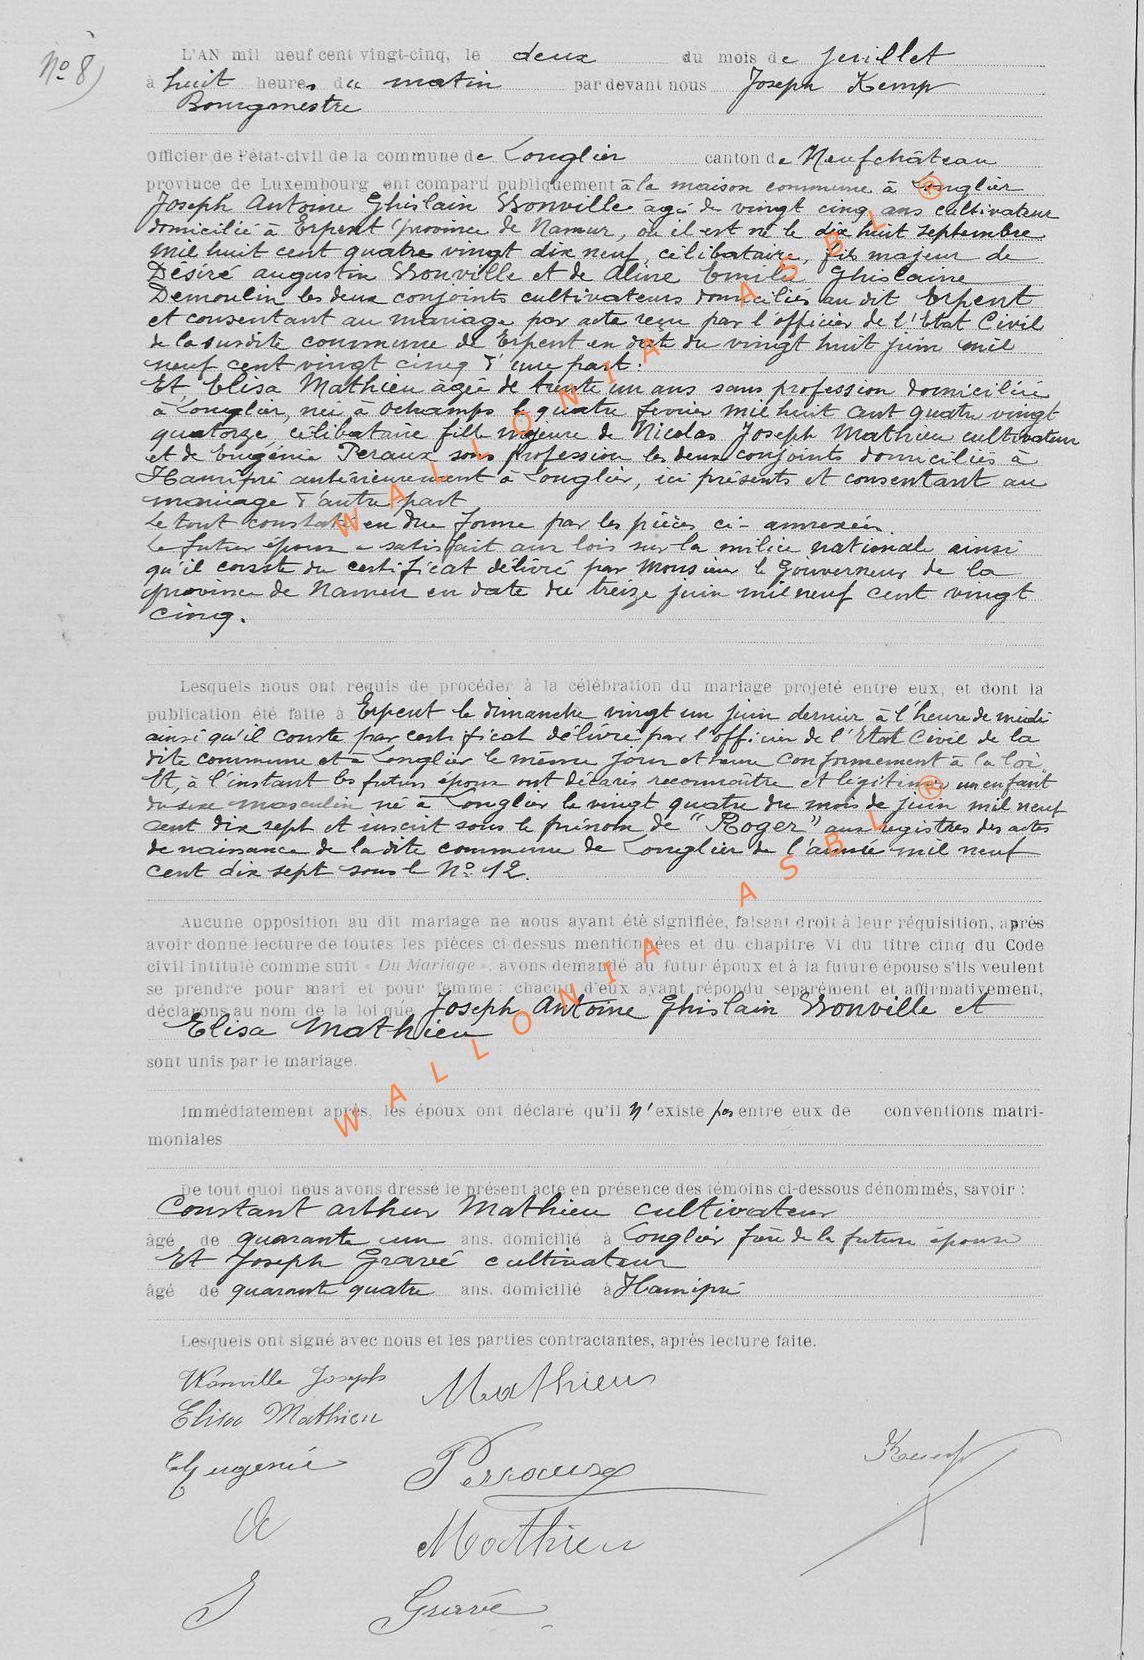 No 8)
L'AN mil neuf cent vingt-cinq, le deux du mois de juillet
à huit heures du matin par devant nous Joseph Kemp
Bourgmestre
Officier de l'état-civil de la commune de Longlier canton de Neufchâteau
province de Luxembourg ont comparu publiquement à la maison commune à Longlier
Joseph Antoine Ghislain Wonville âgé de vingt cinq ans cultivateur
domicilié à Erpent province de Namur, où il est né le dix huit septembre
mil huit cent quatre vingt dix neuf, célibataire, fils majeur de
Désiré augustin Wonville et de Aline Emile Ghislaine
Demoulin les deux conjoints cultivateurs domiciliés au dit Erpent
et consentant au mariage par acte reçu par l'officier de l'Etat Civil
de la susdite commune de Erpent en date du vingt huit juin mil
neuf cent vingt cinq d'une part:
Et Elisa Mathieu âgée de trente un ans sans profession domiciliée
à Longlier, née à Ochamps le quatre fevrier mil huit cent quatre vingt
quatorze, célibataire fille majeure de Nicolas Joseph Mathieu cultivateur
et de Eugénie Peraux sans profession les deux conjoints domiciliés à
Hamipré antérieurement à Longlier, ici présents et consentant au
mariage d'autre part
Le tout constaté en due forme par les pièces ci-annexées.
Le futur époux a satisfait aux lois sur la milice nationale ainsi
qu'il conste du certificat délivré par Monsieur le Gouverneur de la
province de Namur en date du treize juin mil neuf cent vingt
cinq.
Lesquels nous ont requis de procéder à la célébration du mariage projeté entre eux, et dont la
publication été faite à Erpent le dimanche vingt un juin dernier à l'heure de midi
ainsi qu'il conste par certificat délivré par l'officier de l'Etat Civil de la
dite commune et à Longlier le même jour et heure conformement à la loi
Et, à l'instant les futurs époux ont déclaré reconnaître et légitimer un enfant
du sexe masculin né à Longlier le vingt quatre du mois de juin mil neuf
cent dix sept et inscrit sous le prénom de "Roger" aux registres des actes
de naissance de la dite commune de Longlier de l'année mil neuf
cent dix sept sous le No 12.
Aucune opposition au dit mariage ne nous ayant été signifiée, faisant droit à leur réquisition, après
avoir donné lecture de toutes les pièces ci-dessus mentionnées et du chapitre VI du titre cinq du Code
civil intitulé comme suit « Du Mariage », avons demandé au futur époux et à la future épouse s'ils veulent
se prendre pour mari et pour femme : chacun d'eux ayant répondu séparément et affirmativement,
déclarons au nom de la loi que Joseph Antoine Ghislain Wonville et
Elisa Mathieu
sont unis par le mariage.
Immédiatement après, les époux ont déclaré qu'il n'existe pas entre eux de conventions matri-
moniales
De tout quoi nous avons dressé le présent acte en présence des témoins ci-dessous dénommés, savoir :
Constant arthur Mathieu cultivateur
âgé de quarante un ans, domicilié à Longlier frère de la future épouse
Et Joseph Gravé cultivateur
âgé de quarante quatre ans, domicilié à Hamipré
Lesquels ont signé avec nous et les parties contractantes, après lecture faite.
Wonville Joseph Mathieu
Elisa Mathieu
Eugénie Perraux Kemp
A Mathieu
J Gravé
WALLONIA ASBL ®
WALLONIA ASBL ®